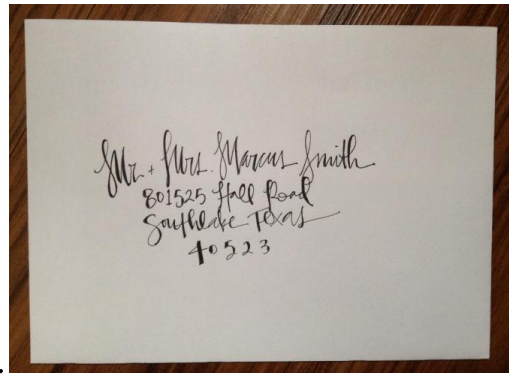 Mr. + Mrs. Marcus Smith
801525 Hall Road
Southlake Texas
40523